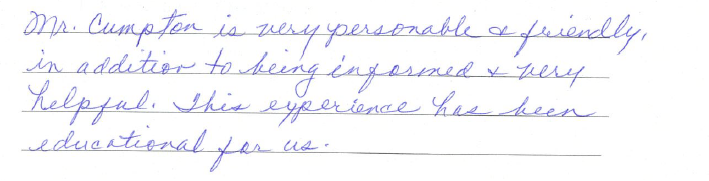 Mr. Cumpton is very personable & friendly,
in addition to being informed & very
helpful. This experience has been
educational for us.